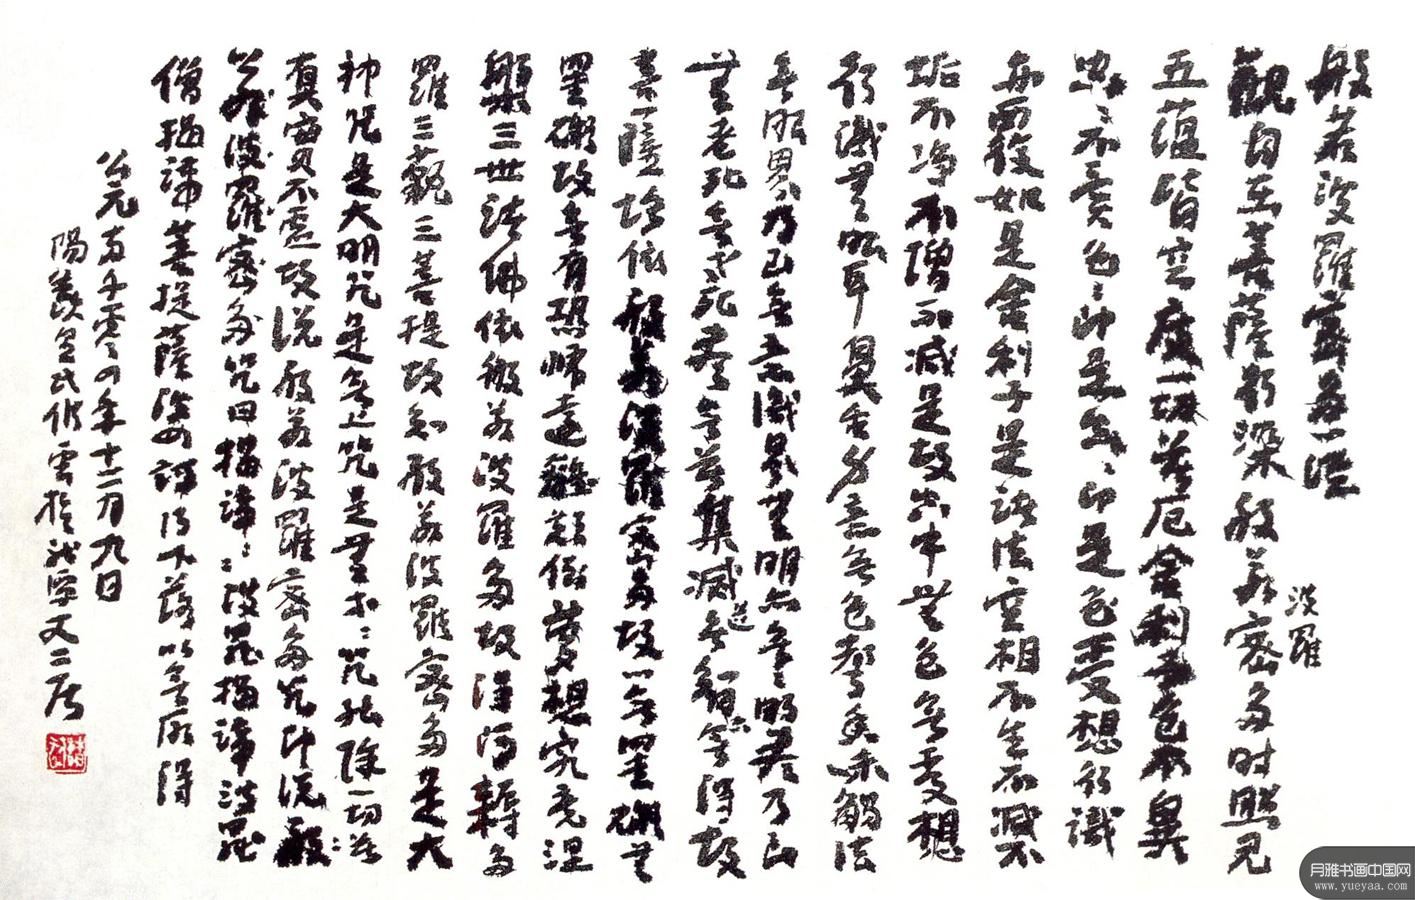 般若波羅蜜多心經
觀自在菩薩行深般若蜜多时照見
波羅
五蘊皆空度一切苦厄舍利子色不異
空々不異色々即是空々即是色受想行識
亦復如是舍利子是諸法空相不生不滅不
垢不淨不增不減是故空中無色無受想
行識無眼耳鼻舌身意無色聲香味觸法
無眼界乃至無意識界無無明亦無々明盡乃至
無老死亦無老死盡無苦集滅無智亦無得故
道
菩薩埵依般若波羅蜜多故心無罣礙無
罣礙故無有恐怖遠離顛倒夢想究竟涅
槃三世諸佛依般若波羅多故得阿耨多
羅三藐三菩提故知般若波羅蜜多是大
神咒是大明咒是無上咒是無等々咒能除一切苦
真實不虛故說般若波羅蜜多咒即說般
若波羅蜜多咒曰揭諦々波羅揭諦波羅
僧揭諦菩提薩婆訶得下落以無所得
公元兩千零四年十二月九日
陽羨
月雅书画中国网
www.yueyaa.com